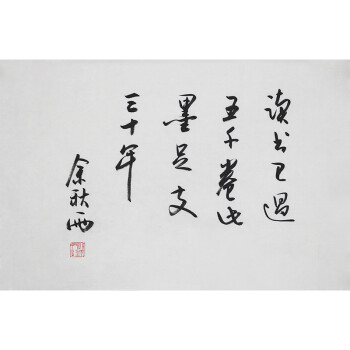 读书已过
五千卷此
墨足支
三十年
余秋雨